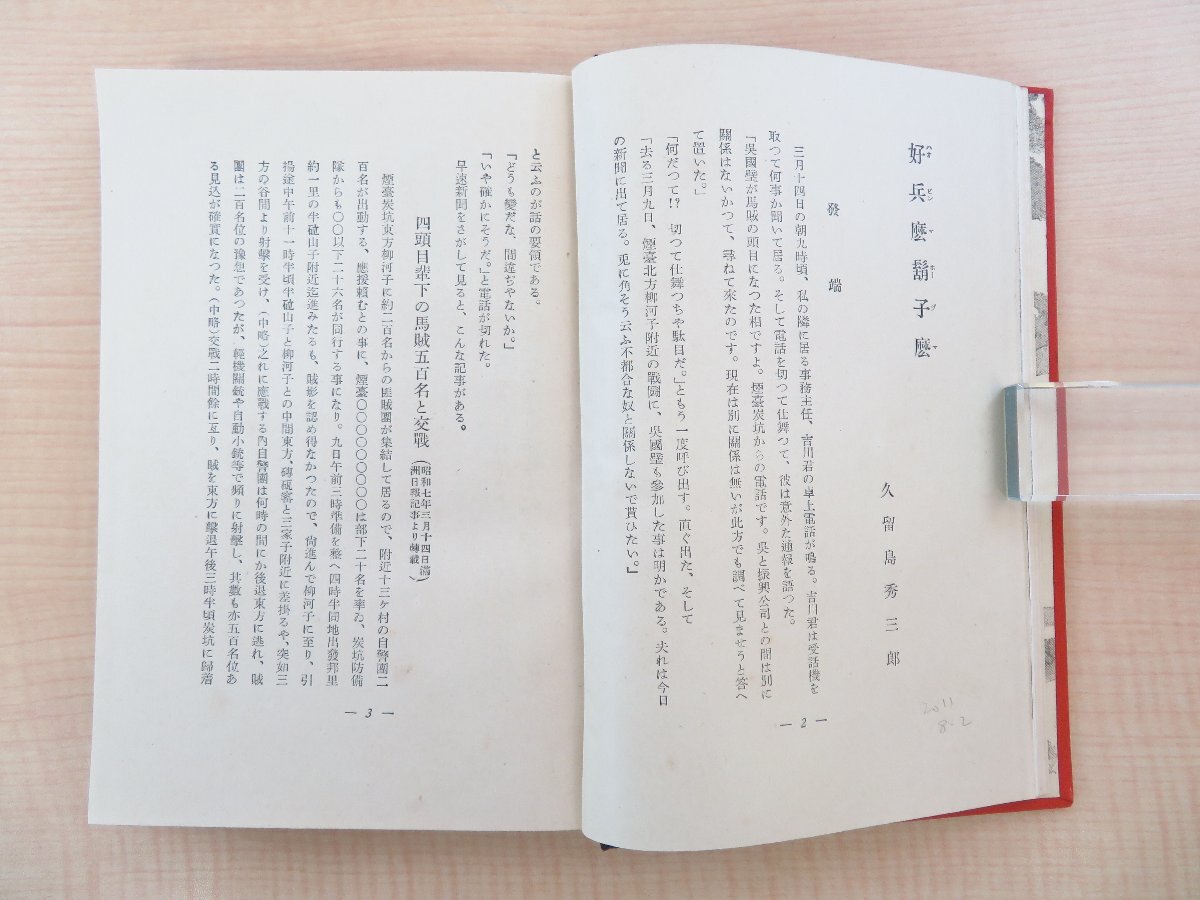 好兵麼鬍子麼
久留島秀三郎
發端
三月十四日の朝九時頃、私の隣に居る事務主任、吉川君の卓上電話が鳴る。吉川君は受話機を
取つて何事か聞いて居る。そして電話を切つて仕舞つて、彼は意外た通報を語つた。
「吳國璧が馬賊の頭目になつた相ですよ。煙臺炭坑からの電話です。吳と振興公司との間は別に
關係はないかつて、尋ねて來たのです。現在は別に關係は無いが此方でも調べて見ませうと答へ
て置いた。」
「何だつて!?　切つて仕舞つちや駄目だ。」ともう一度呼び出す。直ぐ出た、そして
「去る三月九日、煙臺北方柳河子附近の戰鬪に、吳國璧も參加した事は明かである。夫れは今日
の新聞に出て居る。兎に角そう云ふ不都合な奴と關係しないで貰ひたい。」
— 2 —
2011
8-2
と云ふのが話の要領である。
「どうも變だな、間違ぢやないか。」
「いや確かにそうだ。」と電話が切れた。
早速新聞をさがして見ると、こんな記事がある。
四頭目輩下の馬賊五百名と交戰（昭和七年三月十四日滿
洲日報記事より轉載）
煙臺炭坑東方柳河子に約二百名からの匪賊團が集結して居るので、附近十三ケ村の自警團二
百名が出動する、應援賴むとの事に、煙臺〇〇〇〇〇〇〇〇は部下二十名を率ゐ、炭坑防備
隊からも〇〇以下二十六名が同行する事になり。九日午前三時準備を整へ四時半同地出發邦里
約一里の半磖山子附近迄進みたるも、賊影を認め得なかつたので、尙進んで柳河子に至り、引
揚途中午前十一時半頃半磖山子と柳河子との中間東方、磚瓴窰と三家子附近に差掛るや、突如三
方の谷間より射擊を受け、（中略）之れに應戰する內自警團は何時の間にか後退東方に逃れ、賊
團は二百名位の豫想であつたが、輕機關銃や自動小銃等で頻りに射擊し、其數も亦五百名位あ
る見込が確實になつた。（中略）交戰二時間餘に亙り、賊を東方に擊退午後三時半頃炭坑に歸着
— 3 —